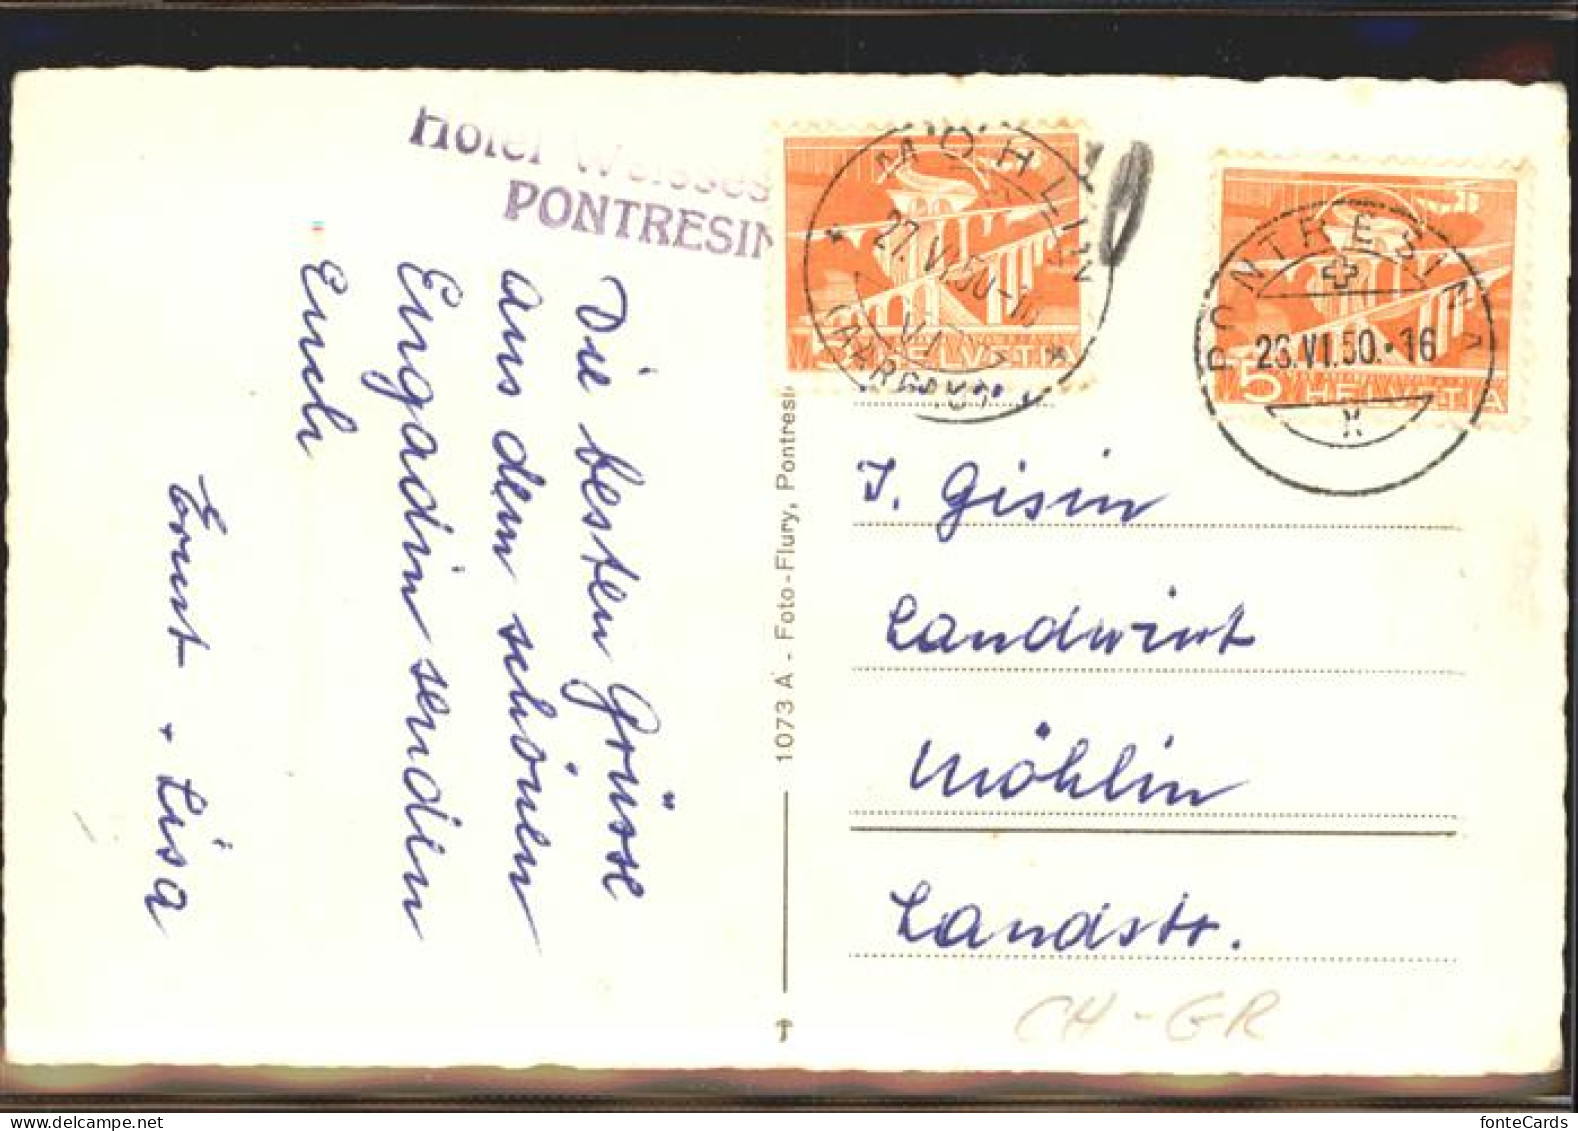 Hotel Weisses
PONTRESIN
Die besten Grüsse
aus dem schönen
Engadin senden
Euch
Ernst + Lisa
1073 A - Foto-Flury, Pontresi
MÖHLIN
27.VI.50-10
VI
(AARGAU)
5 HELVETIA
PONTRESINA
26.VI.50.-16
5 HELVETIA
J. Gisin
Landwirt
Möhlin
Landstr.
CH-GR
fonteCards